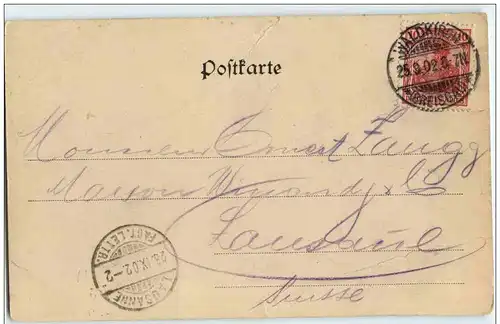 Postkarte
WALDKIRCH
25.9.02.6-7N.
(BREISGAU)
Monsieur Ernest Zaugg
Maison Winandy & Co
Lausanne
Suisse
LAUSANNE
26.IX.02.-2
FACT. LETTR.